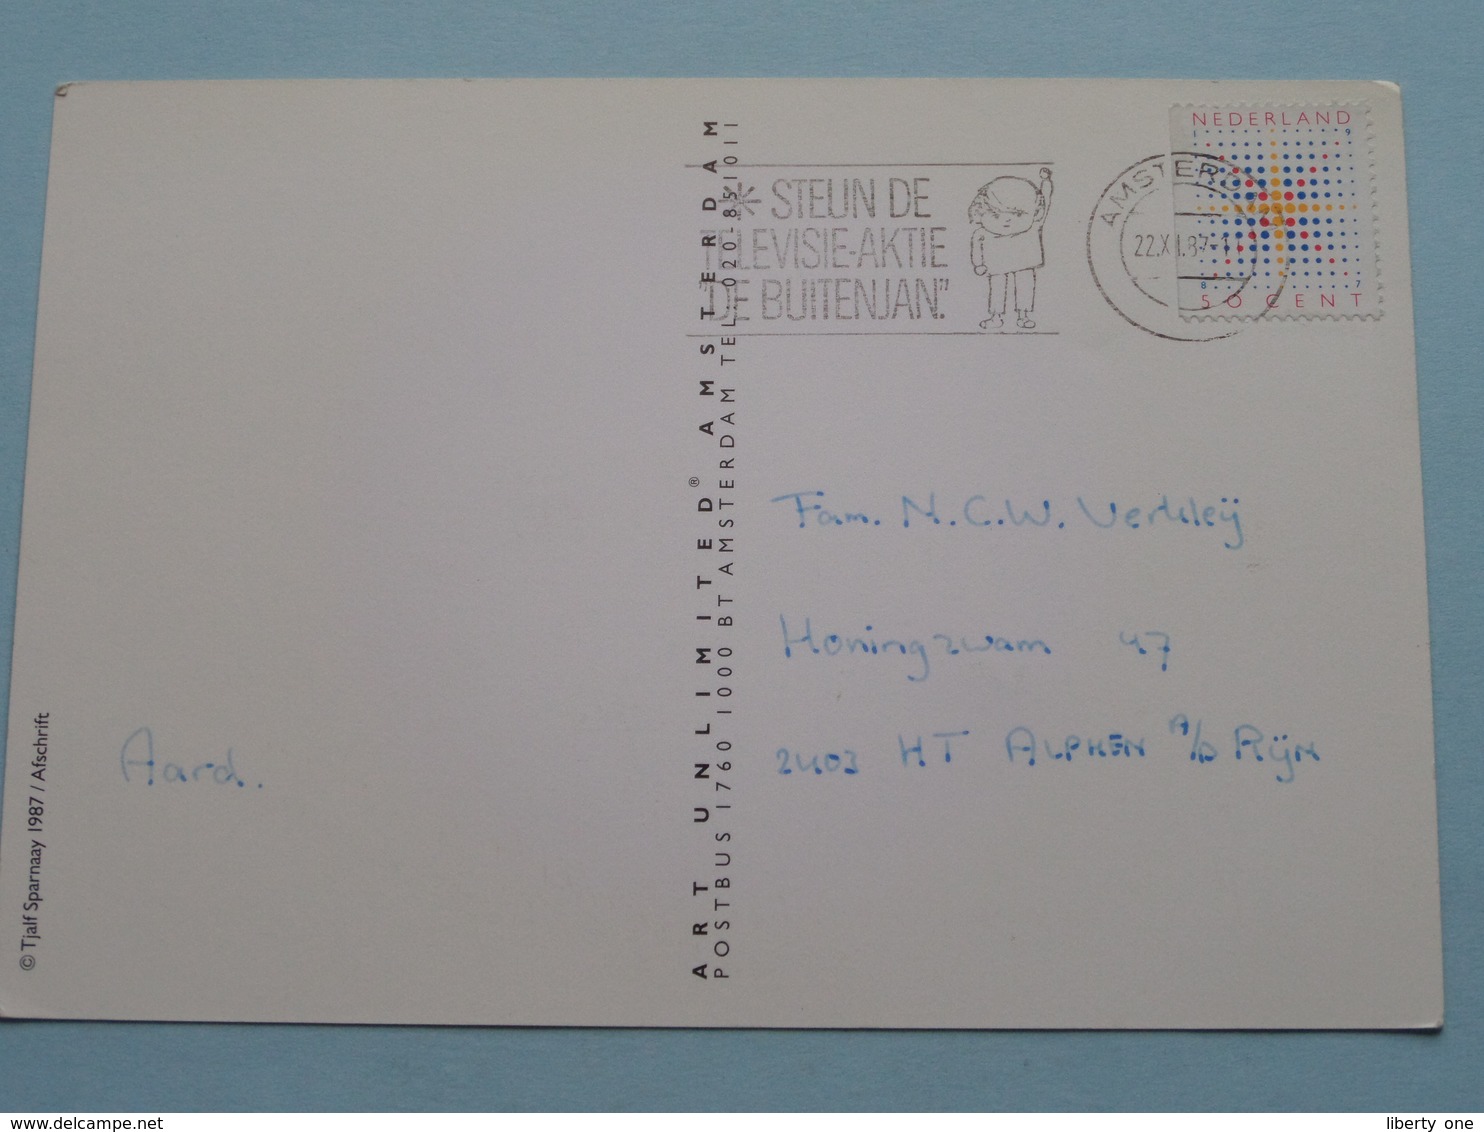 NEDERLAND
1 9
8 7
50 CENT
AMSTERDAM
22.XI.87-11
* STEUN DE
TELEVISIE-AKTIE
"DE BUITENJAN."
ART UNLIMITED® AMSTERDAM
POSTBUS 1760 1000 BT AMSTERDAM TEL. 020-851011
Fam. N.C.W. Verkleij
Honingzwam 47
2403 HT ALPHEN A/D RIJN
Aard.
© Tjalf Sparnaay 1987 / Afschrift
www.delcampe.net
liberty one